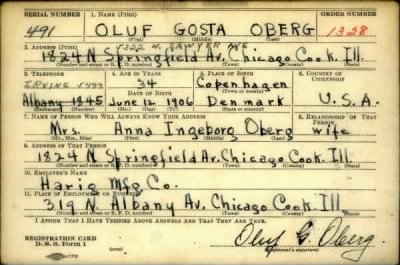 SERIAL NUMBER 1. NAME (Print) ORDER NUMBER
491 OLUF GOSTA OBERG 1328
(First) (Middle) (Last)
2. ADDRESS (Print) 5322 N. SAWYER AVE
1824 N Springfield Av. Chicago Cook Ill.
(Number and street or R. F. D. number) (Town) (County) (State)
3. TELEPHONE 4. AGE IN YEARS 5. PLACE OF BIRTH 6. COUNTRY OF CITIZENSHIP
IRVING 34 Copenhagen
DATE OF BIRTH (Town or county)
Albany 1845 June 12 1906 Denmark U.S.A.
(Exchange) (Number) (Mo.) (Day) (Yr.) (State or country)
7. NAME OF PERSON WHO WILL ALWAYS KNOW YOUR ADDRESS 8. RELATIONSHIP OF THAT PERSON
Mrs. Anna Ingeborg Oberg wife
(Mr., Mrs., Miss) (First) (Middle) (Last)
9. ADDRESS OF THAT PERSON
1824 N Springfield Av. Chicago Cook Ill
(Number and street or R. F. D. number) (Town) (County) (State)
10. EMPLOYER'S NAME
Harig Mfg Co.
11. PLACE OF EMPLOYMENT OR BUSINESS
319 N Albany Av. Chicago Cook Ill
(Number and street or R. F. D. number) (Town) (County) (State)
I AFFIRM THAT I HAVE VERIFIED ABOVE ANSWERS AND THAT THEY ARE TRUE.
REGISTRATION CARD
D. S. S. Form 1 (over)
Oluf G. Oberg.
(Registrant's signature)